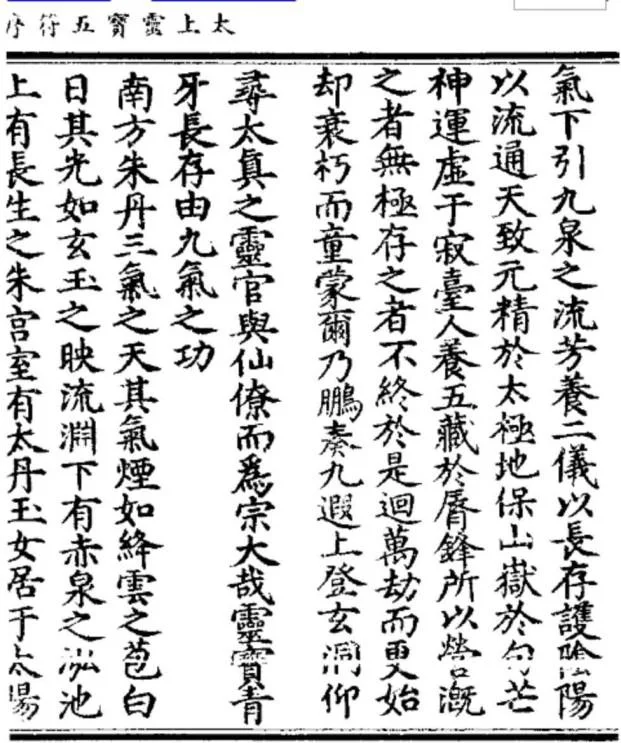 太上靈寶五符序
氣下引九泉之流芳養二儀以長存護陰陽
以流通天致元精於太極地保山嶽於句芒
神運虛于寂臺人養五藏於脣鋒所以營溉
之者無極存之者不終於是迴萬劫而更始
却衰朽而童蒙爾乃鵬奏九遐上登玄洞仰
尋太真之靈官與仙僚而爲宗大哉靈寶青
牙長存由九氣之功
南方朱丹三氣之天其氣煙如絳雲之苞白
日其光如玄玉之映流淵下有赤泉之泓池
上有長生之朱宮室有太丹玉女居于太陽